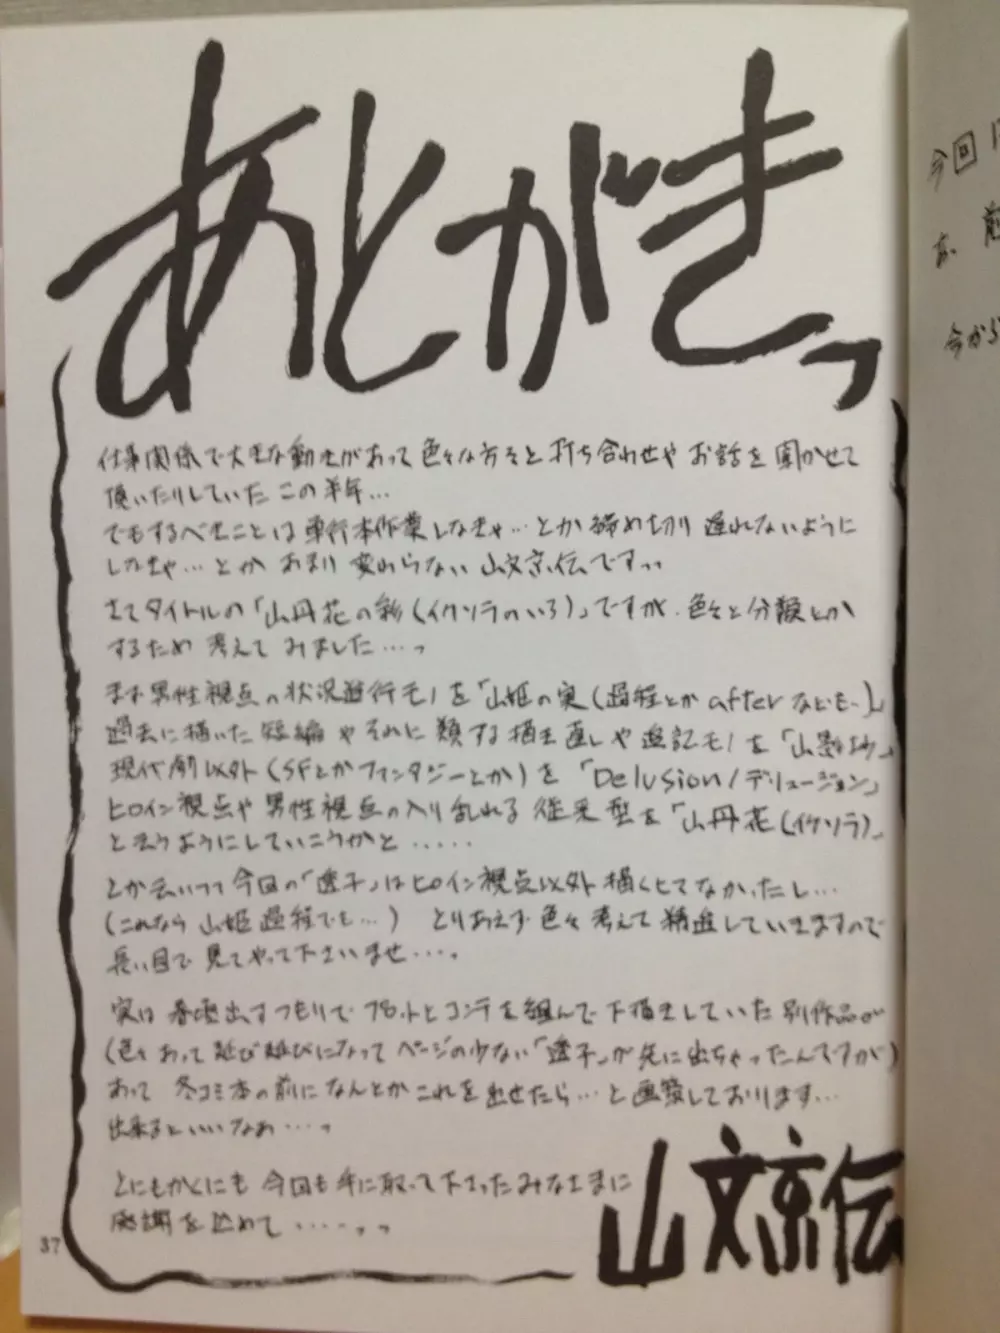 あとがきっ
仕事関係で大きな動きがあって色々な方々と打ち合わせや お話を聞かせて
頂いたりしていた この半年...
でもするべきことは 単行本作業しなきゃ...とか 締め切り 遅れないように
しなきゃ...とか あまり 変わらない 山文京伝ですっ
さてタイトルの「山丹花の彩(イケソラのいろ)」ですが、色々と分類とか
するため 考えて みました....っ
まず男性視点の状況進行モノを「山姫の実(過程とか afterなども)」
過去に描いた短編やそれに 類する描き直しや 追記モノを「山影抄」
現代劇以外(SFとかファンタジーとか)を「Delusion/デリュージョン」
ヒロイン視点や男性視点の入り乱れる 従来型を「山丹花(イケソラ)」
と云うようにしていこうかと.....
とか云いつつ今回の「透子」はヒロイン視点以外描くヒマなかったし...
(これなら山姫過程でも...) とりあえず色々考えて 精進していきますので
長い目で見てやって下さいませ....。
実は 春頃出すつもりで プロットとコンテを組んで下描きしていた別作品が
(色々あって延び延びになってページの少ない「透子」が先に出ちゃったんですが)
あって 冬コミ本の前になんとかこれを出せたら...と画策しております...
出来るといいなあ....っ
とにもかくにも 今回も手に取って下さったみなさまに
感謝を込めて......っっ
山文京伝
37
今回
今から